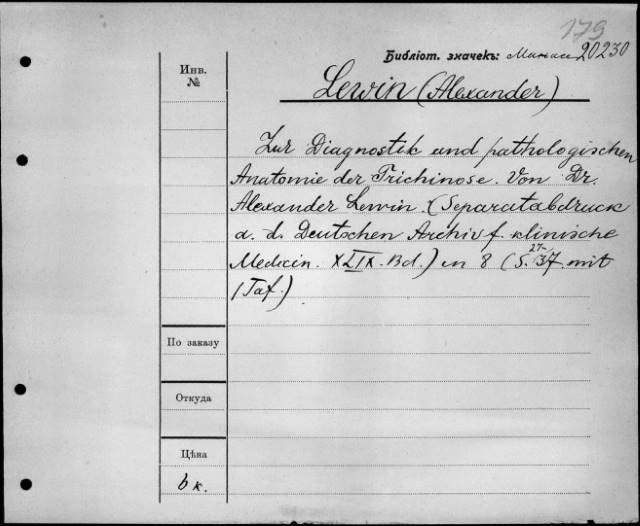 179
Библіот. значекъ: 20230
Инв.
№
Lewin (Alexander)
Zur Diagnostik und pathologischen
Anatomie der Trichinose. Von Dr.
Alexander Lewin. (Separatabdruck
a. d. Deutschen Archiv f. klinische
Medicin. XLIX. Bd.) in 8 (S. 37 mit
1 Taf.)
По заказу
Откуда
Цѣна
6 к.